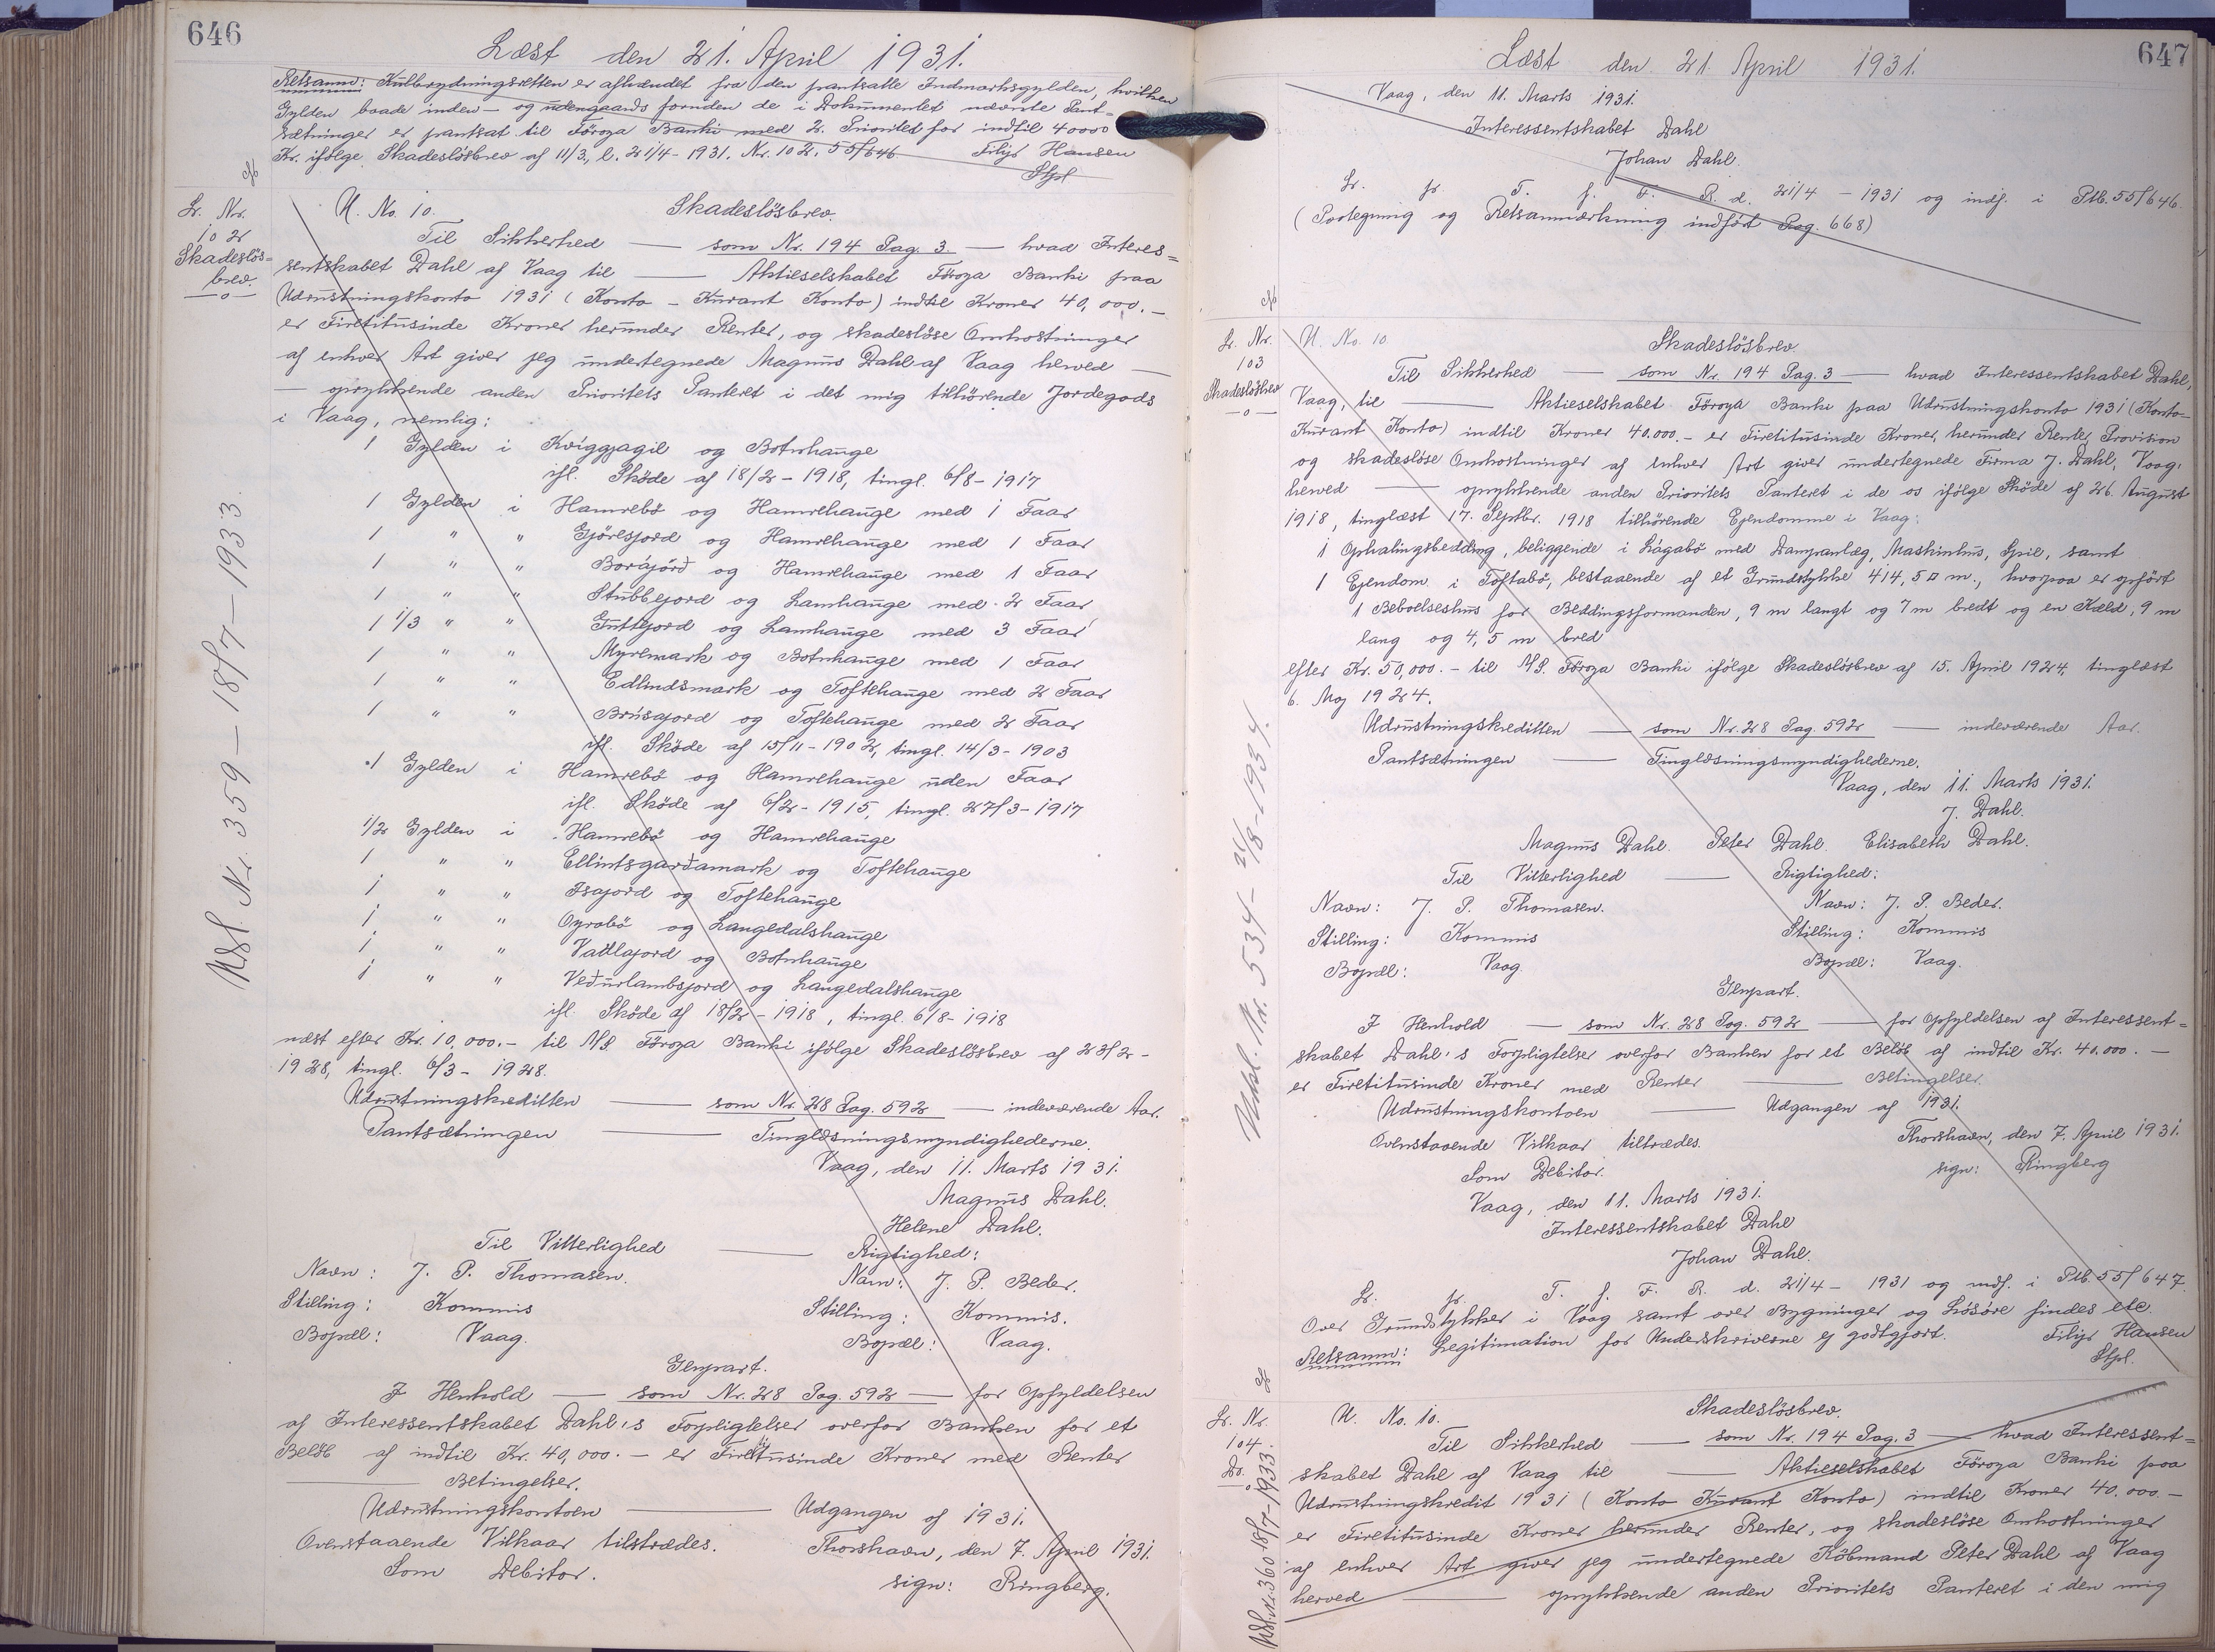 646
Læst den 21. April 1931.
Retsanm: Kulbrydningsretten er afhændet fra den pantsatte Indmarksgylden, hvilken
Gylden baade inden- og udengaards foruden de i Dokumentet nævnte Pant-
sætninger er pantsat til Föroya Banki med 2. Prioritet for indtil 40000
Kr. ifølge Skadeslösbrev af 11/3, l. 21/4 - 1931. Nr. 102. 55/646 Filip Hansen
Stpl
Lr. Nr.
102
Skadeslös=
brev.
—o—
Udsl. Nr. 359 - 18/7 - 1933.
U. No. 10. Skadeslösbrev.
Til Sikkerhed — som Nr. 194 Pag. 3. — hvad Interes=
sentskabet Dahl af Vaag til — Aktieselskabet Föroya Banki paa
Udrustningskonto 1931 (Konto - Kurant Konto) indtil Kroner 40,000.-
er Firetitusinde Kroner herunder Renter, og skadeslöse Omkostninger
af enhver Art giver jeg undertegnede Magnus Dahl af Vaag herved —
— oprykkende anden Prioritets Panteret i det mig tilhörende Jordegods
i Vaag, nemlig:
1 Gylden i Kviggjagil og Botnhauge
ifl. Sköde af 18/2 - 1918, tingl. 6/8 - 1917
1 Gylden i Hamrebö og Hamrehauge med 1 Faar
1 " " Gjøresjord og Hamrehauge med 1 Faar
1 " " Borájörð og Hamrehauge med 1 Faar
1 " " Stubbejord og Lamhauge med 2 Faar
1 1/3 " " Tuttjord og Lamhauge med 3 Faar
1 " " Myremark og Botnhauge med 1 Faar
1 " " Edlindsmark og Toftehauge med 2 Faar
1 " " Brúsajord og Toftehauge med 2 Faar
ifl. Sköde af 15/11 - 1902, tingl. 14/3 - 1903
1 Gylden i Hamrebö og Hamrehauge uden Faar
ifl. Sköde af 6/2 - 1915, tingl. 27/3 - 1917
1/2 Gylden i Hamrebö og Hamrehauge
1 " " Ellintsgarðamark og Toftehauge
1 " " Isajord og Toftehauge
1 " " Oyrabö og Langedalshauge
1 " " Vadlajord og Botnhauge
1 " " Veðurlambsjord og Langedalshauge
ifl. Sköde af 18/2 - 1918, tingl. 6/8 - 1918
næst efter Kr. 10,000.- til A/S. Föroya Banki ifölge Skadeslösbrev af 23/2 -
1928, tingl. 6/3 - 1928.
Udrustningskreditten — som Nr. 28 Pag. 592 — indeværende Aar.
Pantsætningen — Tinglæsningsmyndighederne.
Vaag, den 11. Marts 1931.
Magnus Dahl.
Helene Dahl.
Til Vitterlighed — Rigtighed:
Navn: J. P. Thomasen. Navn: J. P. Beder.
Stilling: Kommis Stilling: Kommis.
Bopæl: Vaag. Bopæl: Vaag.
Genpart.
I Henhold — som Nr. 28 Pag. 592 — for Opfyldelsen
af Interessentskabet Dahl's Forpligtelser overfor Banken for et
Belöb af indtil Kr. 40,000.- er Firetitusinde Kroner med Renter
— Betingelser.
Udrustningskontoen — Udgangen af 1931.
Ovenstaaende Vilkaar tilstrædes. Thorshavn, den 7. April 1931.
Som Debitor. sign: Ringberg.
647
Læst den 21. April 1931.
Vaag, den 11. Marts 1931.
Interessentskabet Dahl
Johan Dahl.
Lr. fr. T. f. F. R. d. 21/4 - 1931 og indf. i Ptb. 55/646.
(Paategning og Retsanmærkning indfört Pag. 668)
Lr. Nr.
103
Skadeslösbrev
—o—
Udsl. Nr. 534 - 21/8 - 1934.
U. No. 10 Skadeslösbrev.
Til Sikkerhed — som Nr. 194 Pag. 3 — hvad Interessentskabet Dahl,
Vaag, til — Aktieselskabet Föroya Banki paa Udrustningskonto 1931 (Konto-
Kurant Konto) indtil Kroner 40.000.- er Firetitusinde Kroner, herunder Renter, Provision
og skadeslöse Omkostninger af enhver Art giver undertegnede Firma J. Dahl, Vaag,
herved — oprykkende anden Prioritets Panteret i de os ifölge Sköde af 26. August
1918, tinglæst 17. Septbr. 1918 tilhörende Ejendomme i Vaag:
1 Ophalingsbedding, beliggende i Lágabö med Dampanlæg, Maskinhus, Spil, samt
1 Ejendom i Toftabö, bestaaende af et Grundstykke 414,5 □ m., hvorpaa er opfört
1 Beboelseshus for Beddingsformanden, 9 m langt og 7 m bredt og en Kæld, 9 m
lang og 4,5 m bred
efter Kr. 50,000.- til A/S. Föroya Banki ifölge Skadeslösbrev af 15. April 1924, tinglæst
6. Maj 1924.
Udrustningskreditten — som Nr. 28 Pag. 592 — indeværende Aar.
Pantsætningen — Tinglæsningsmyndighederne.
Vaag, den 11. Marts 1931.
J. Dahl.
Magnus Dahl. Peter Dahl. Elisabeth Dahl.
Til Vitterlighed — Rigtighed:
Navn: J. P. Thomasen. Navn: J. P. Beder.
Stilling: Kommis Stilling: Kommis
Bopæl: Vaag. Bopæl: Vaag.
Genpart.
I Henhold — som Nr. 28 Pag. 592 — for Opfyldelsen af Interessent=
skabet Dahl's Forpligtelser overfor Banken for et Belöb af indtil Kr. 40.000.-
er Firetitusinde Kroner med Renter — Betingelser.
Udrustningskontoen — Udgangen af 1931.
Ovenstaaende Vilkaar tiltrædes. Thorshavn, den 7. April 1931.
Som Debitor. sign: Ringberg
Vaag, den 11. Marts 1931.
Interessentskabet Dahl
Johan Dahl.
Lr. fr. T. f. F. R. d. 21/4 - 1931 og indf. i Ptb. 55/647.
Over Grundstykker i Vaag samt over Bygninger og Lösöre findes etc.
Retsanm: Legitimation for Underskriverne ej godtgjort. Filip Hansen
Stpl.
Lr. Nr.
104.
Do.
—o—
Udsl. Nr. 360 18/7 - 1933.
U. No. 10. Skadeslösbrev.
Til Sikkerhed — som Nr. 194 Pag. 3 — hvad Interessent=
skabet Dahl af Vaag til — Aktieselskabet Föroya Banki paa
Udrustningskredit 1931 (Konto Kurant Konto) indtil Kroner 40.000.-
er Firetitusinde Kroner herunder Renter, og skadeslöse Omkostninger
af enhver Art giver jeg undertegnede Köbmand Peter Dahl af Vaag
herved — oprykkende anden Prioritets Panteret i den mig